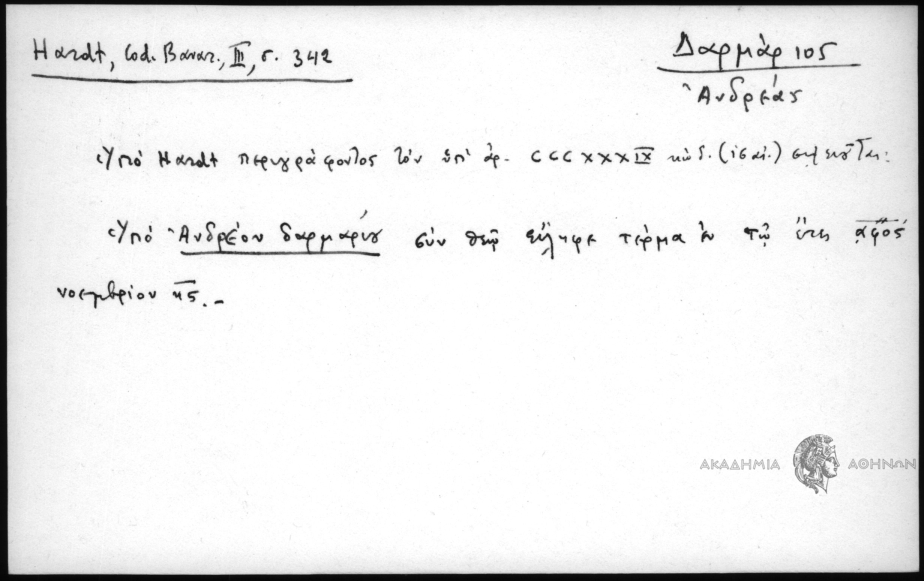 Hardt, Cod. Bavar., III, σ. 342
Δαρμάριος
Ἀνδρέας
Ὑπὸ Hardt περιγράφοντος τὸν ὑπ' ἀρ. CCCXXXIX κώδ. (ις αἰ.) σημειοῦται:
Ὑπὸ Ἀνδρέου δαρμαρίου σὺν θεῷ εἴληφε τέρμα ἐν τῷ ἔτει ͵αφο̅ς̅
νοεμβρίου κ̅ς̅.–
ΑΚΑΔΗΜΙΑ ΑΘΗΝΩΝ